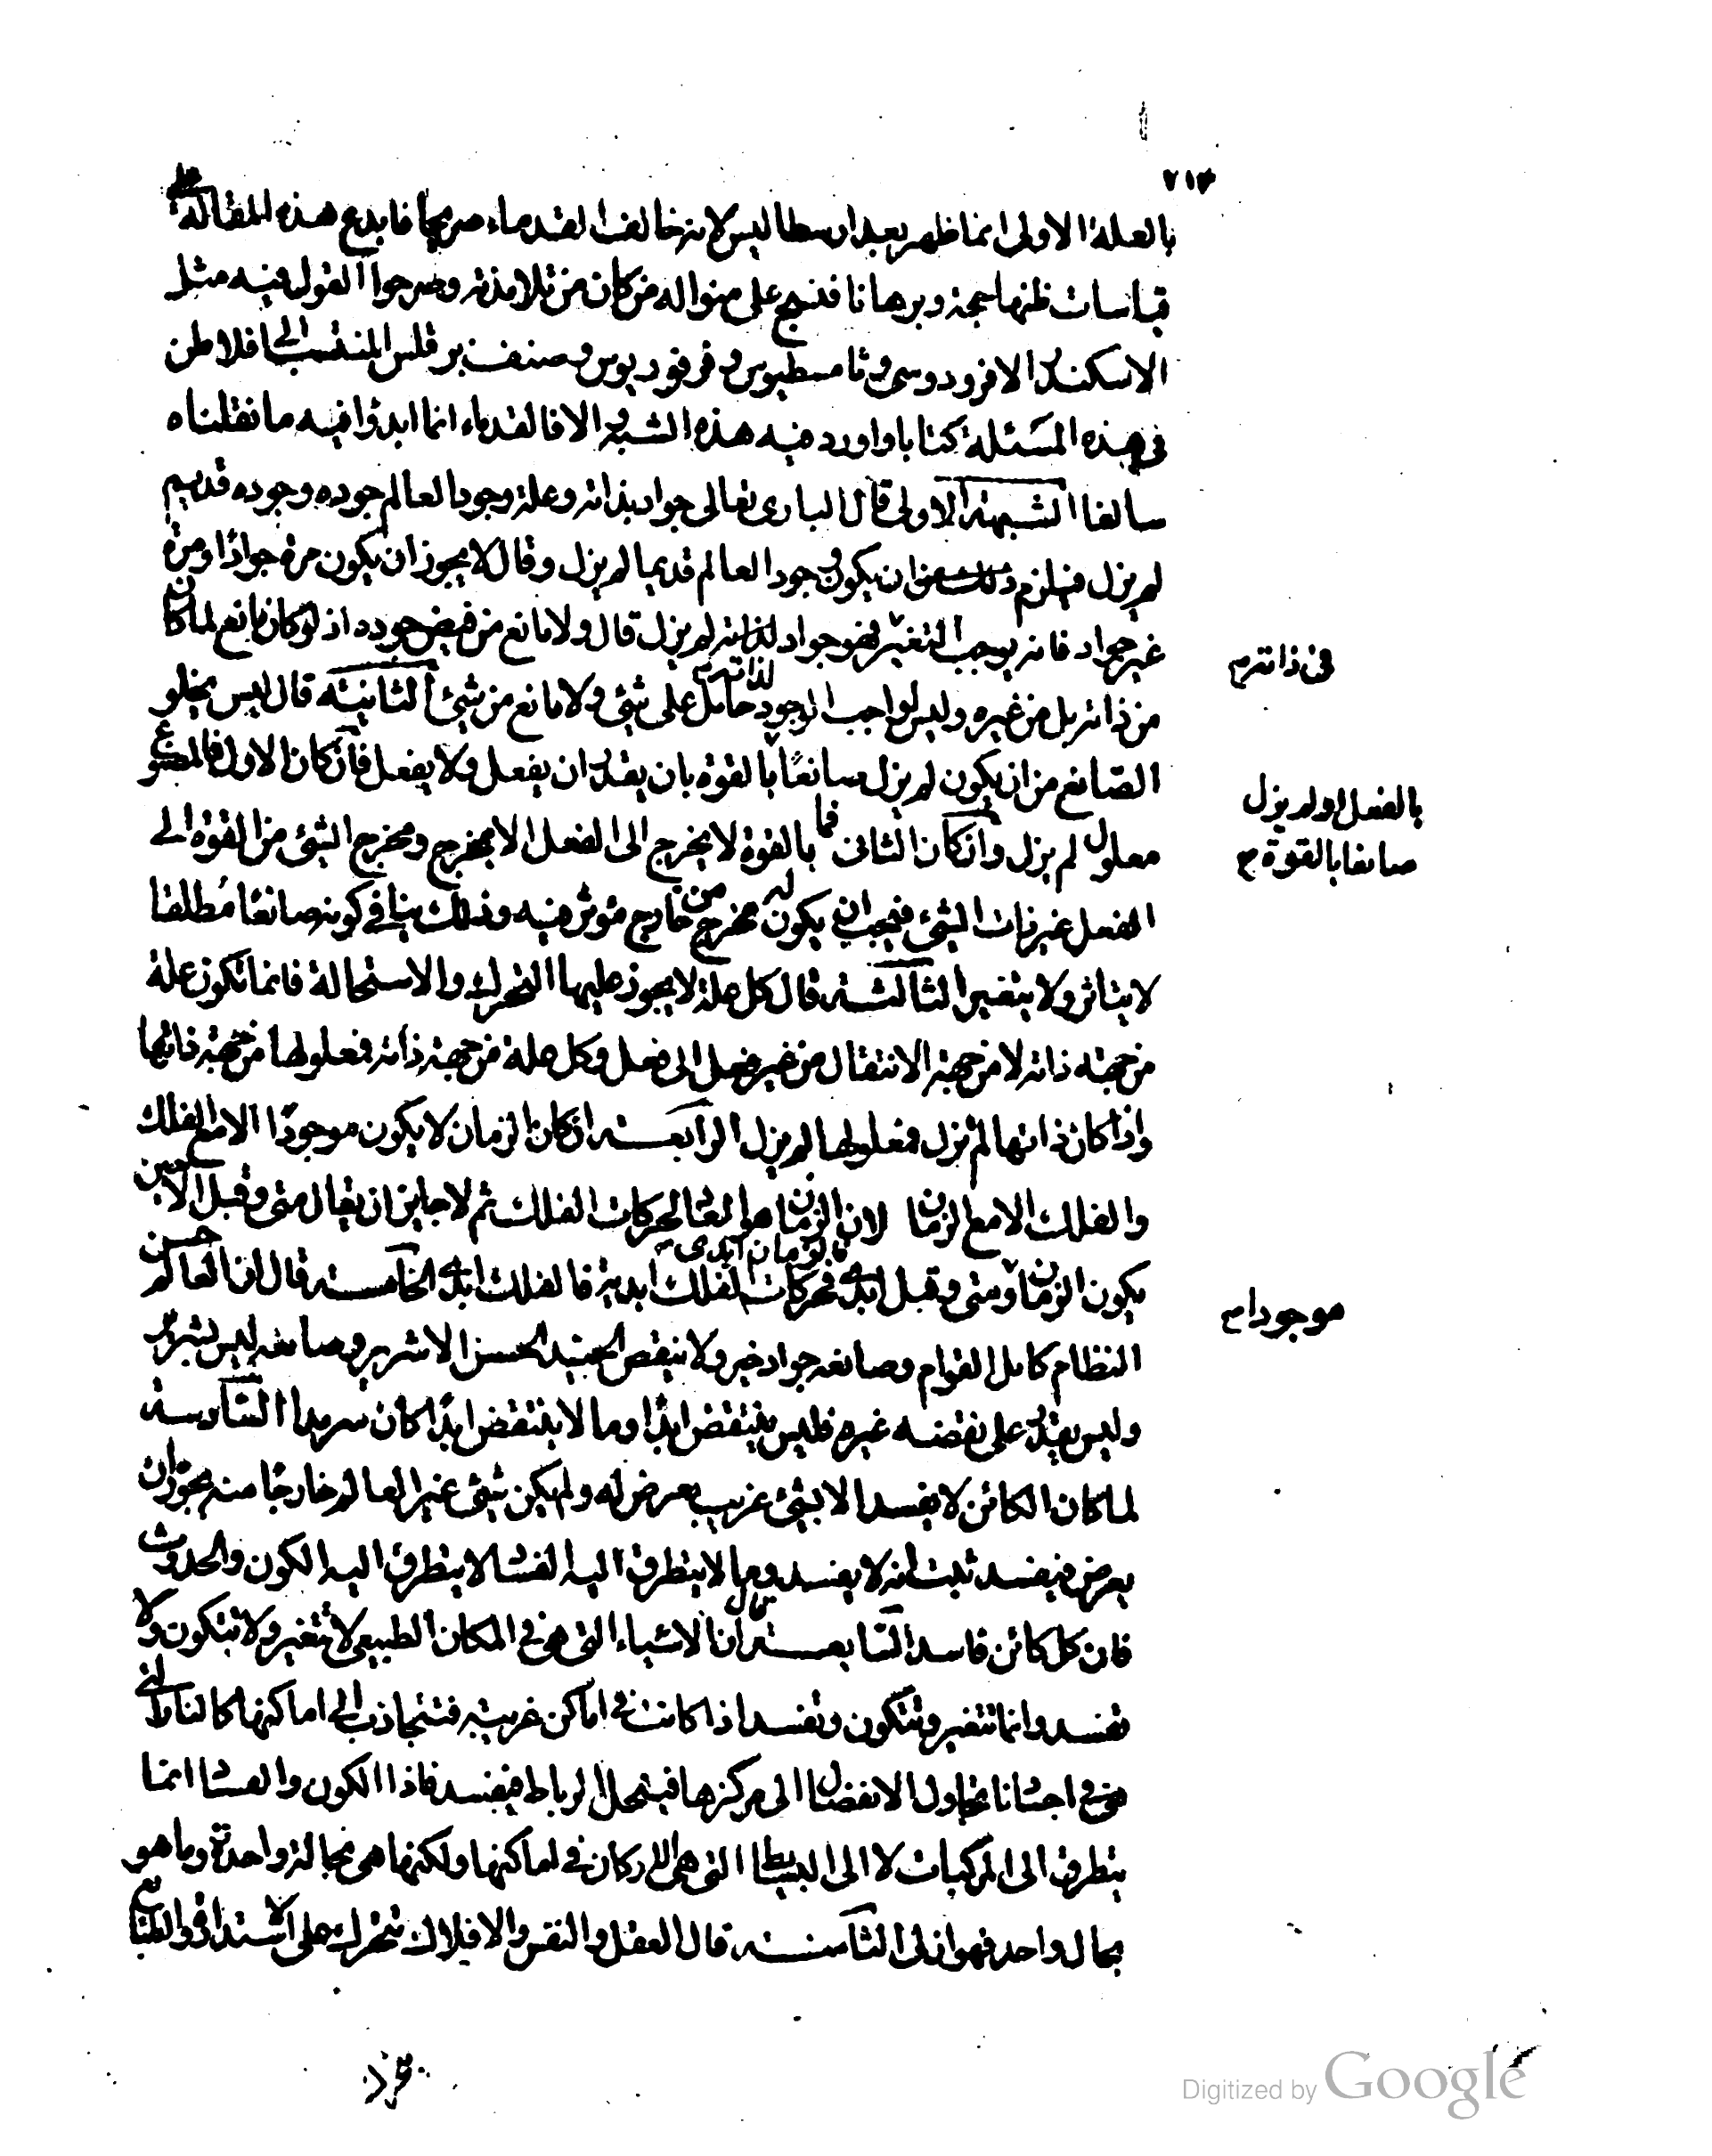 ٢١٣
بالعلة الاولى انما ظهر بعد ارسطاليس لانه خالف القدماء صريحا فابدع هذه المقالة على
قياسات ظنها حجة وبرهانا فنسج على منواله من كان من تلامذته وصرحوا القول فيه مثل
الاسكندر الافرودوسى وثامسطيوس وفرفوريوس وصنف برقلس المنتسب الى افلاطن
فى هذه المسئلة كتابا واورد فيه هذه الشبه والا فالقدماء انما ابدوا فيه ما نقلناه
سالفا الشبهة الاولى قال البارى تعالى جواد بذاته وعلة وجود العالم جوده وجوده قديم
لم يزل فيلزم ان يكون وجود العالم قديما لم يزل وقال لا يجوز ان يكون مرة جوادا ومرة
غير جواد فانه يوجب التغير فهو جواد لذاته لم يزل قال ولا مانع من فيض جوده اذ لو كان مانع لما كان
فى ذاته م
من ذاته بل من غيره وليس لواجب الوجود لذاته حامل على شئ ولا مانع من شئ الثانية قال ليس يخلو
الصانع من ان يكون لم يزل صانعا بالقوة بان يقدر ان يفعل ولا يفعل فان كان الاول فالمصنوع
بالفعل او لم يزل
صانعا بالقوة م
معلول لم يزل وان كان الثانى فما بالقوة لا يخرج الى الفعل الا بمخرج ومخرج الشئ من القوة الى
الفعل غير ذات الشئ فيجب ان يكون له مخرج من خارج مؤثر فيه وذلك ينافى كونه صانعا مطلقا
لا يتاثر ولا يتغير الثالثة قال كل علة لا يجوز عليها التحرك والاستحالة فانما تكون علة
من جهة ذاته لا من جهة الانتقال من غير فعل الى فعل وكل علة من جهة ذاته فمعلولها من جهة ذاتها
واذا كان ذاتها لم تزل فمعلولها لم يزل الرابعة ان كان الزمان لا يكون موجودا الا مع الفلك
والفلك الا مع الزمان لان الزمان هو العاد لحركات الفلك ثم لا جايز ان يقال متى وقبل الا حين
يكون الزمان ومتى وقبل ابدى فالزمان ابدى فحركات الفلك ابدية فالفلك ابدى الخامسة قال ان العالم حسن
موجودا م
النظام كامل القوام وصانعه جواد خير ولا ينقض الجيد الحسن الا شرير وصانعه ليس بشرير
وليس يقدر على نقضه غيره فليس ينتقض ابدا وما لا ينتقض ابدا كان سرمدا السادسة
لما كان الكائن لا يفسد الا بشئ غريب يعرض له ولم يكن شئ غير العالم خارجا منه يجوز ان
يعرض فيفسد ثبت انه لا يفسد وما لا يتطرق اليه الفساد لا يتطرق اليه الكون والحدوث
فان كل كائن فاسد السابعة قال ان الاشياء التى هى فى المكان الطبيعى لا تتغير ولا تتكون ولا
تفسد وانما تتغير وتتكون وتفسد اذا كانت فى اماكن غريبة فتتجاذب الى اماكنها كالنار التى
هى فى اجسادنا تحاول الانفصال الى مركزها فينحل الرباط فيفسد فاذا الكون والفساد انما
يتطرق الى المركبات لا الى البسايط التى هى الاركان فى اماكنها ولكنها هى بحالة واحدة وما هو
بحال واحد فهو ازلى الثامنة قال العقل والنفس والافلاك تتحرك على الاستدارة والطبايع
Digitized by Google